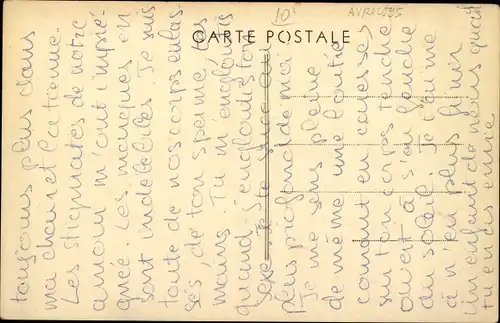 CARTE POSTALE
10
AVRIL 95
toujours plus dans
ma chair et l'actionne.
Les stigmates de notre
amour m'ont impré-
gnée. Les marques en
sont indélébiles. Je suis
toute de nos corps enlas-
sés, de ton sperme, tes
mains. Tu m'engloutis
quand j'engloutis ton
sexe. Je te suce au
plus profond de ma
Je me sens pleine
de même une loutre
courant en caresses
sur ton corps tendre
ouvert à s'en
du soleil. Je t'aime
à n'en plus finir
un enfant de nous quand
tu en as envie.